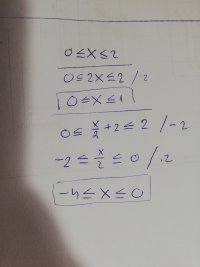 0 ≤ x ≤ 2
0 ≤ 2x ≤ 2 / 2
0 ≤ x ≤ 1
0 ≤ x/2 + 2 ≤ 2 / -2
-2 ≤ x/2 ≤ 0 / .2
-4 ≤ x ≤ 0